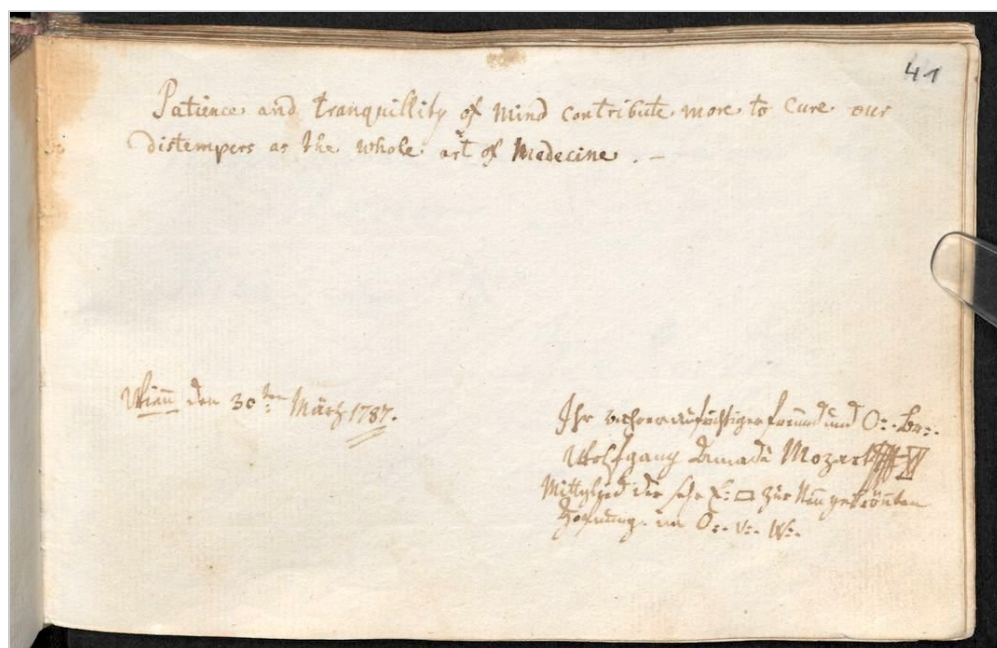 41
Patience and tranquillity of mind contribute more to cure our
distempers as the whole art of Medecine. –
Wienn den 30:ten März 1787.
Ihr wahrer aufrichtiger freund und O:. Br:.
Wolfgang Amadè Mozart
Mittglied der sehr E:. □ zur Neugekrönten
Hofnung im O:. v:. W:.